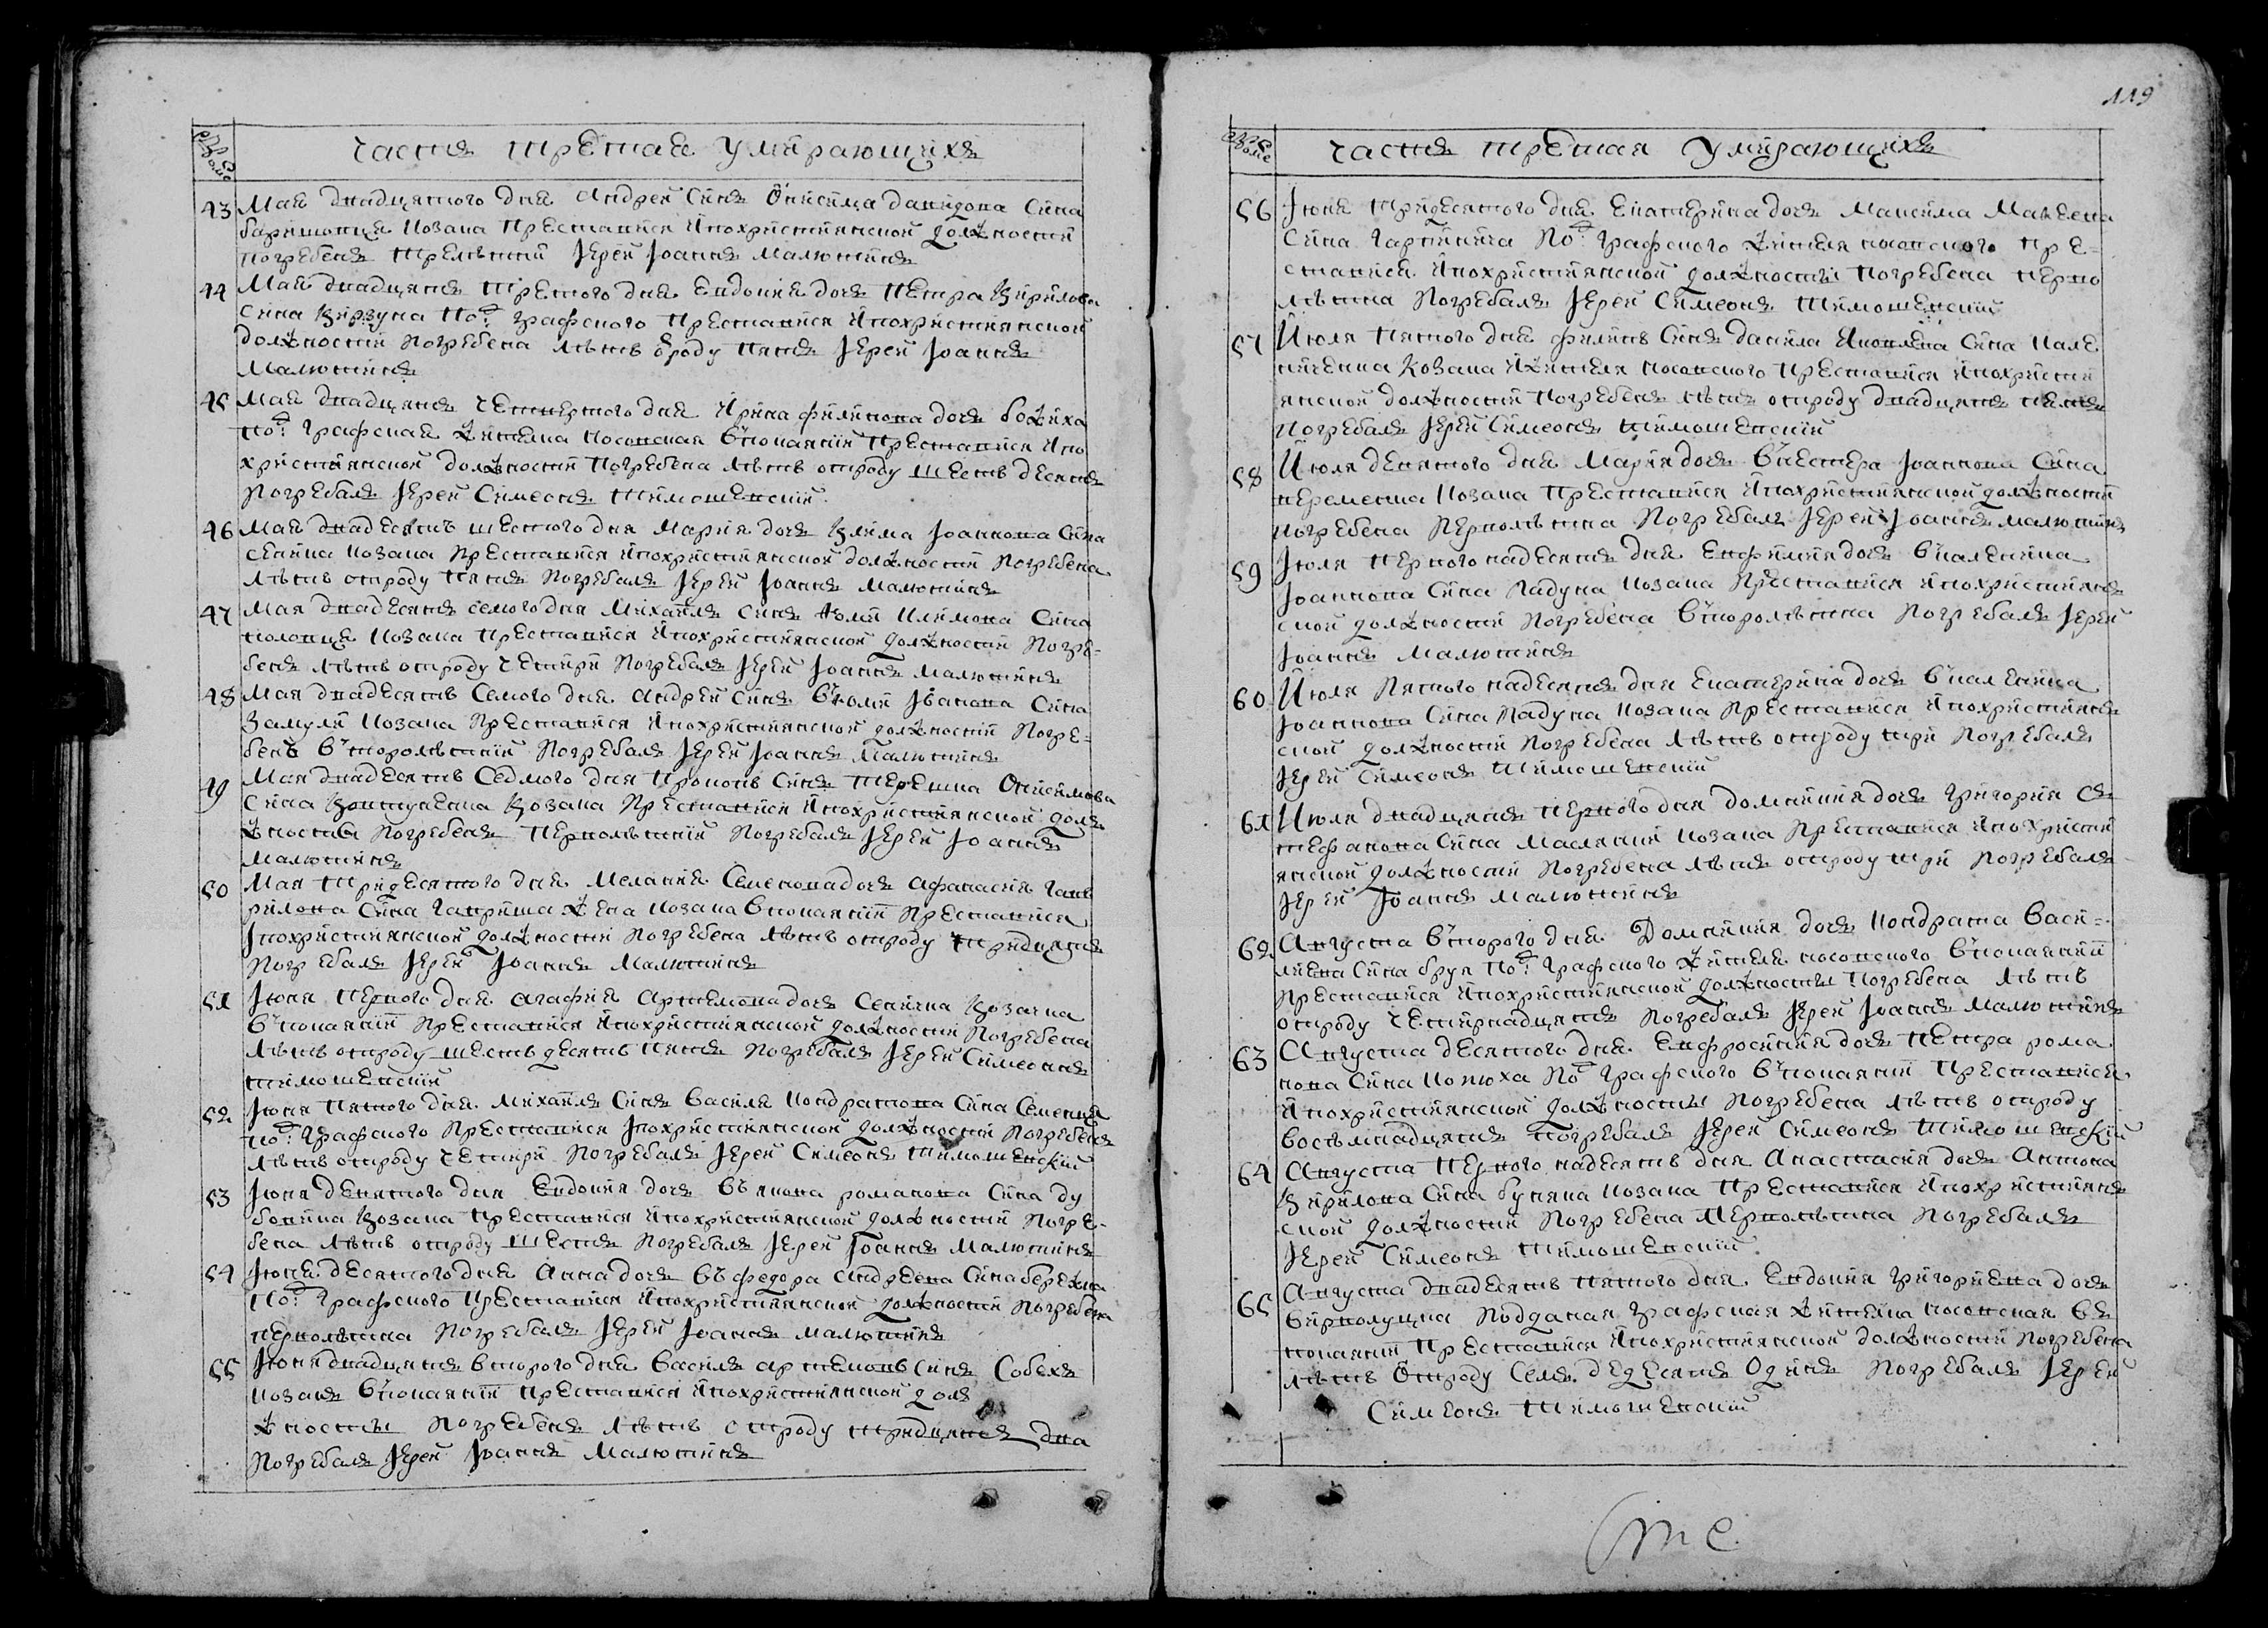 Часть третая умирающихъ
43 Мая двадцятого дня Андрей синъ Онисима Давидова сина
козака преставися и по християнской должности
погребенъ трелѣтній Іерей Іоаннъ Малютинъ
44 Мая двадцять третого дня Евдокия дочь Петра Кирилова
сина по графского преставися и по християнской
должности погребена лѣтъ ѿ роду пять Іерей Іоаннъ
Малютинъ
45 Мая двадцять четвертого дня Ирина Филипова дочь Божиха
по графская жителка носовская въ покаяніи преставися и по
християнской должности погребена лѣтъ отроду шестъ десять
погребалъ Іерей Симеонъ Тимошевскій
46 Мая двадесять шестого дня Мария дочь Клима Іоаннова сина
козака преставися и по християнской должности погребена
лѣтъ отроду пять погребалъ Іерей Іоаннъ Малютинъ
47 Мая двадесять семого дня Михаилъ синъ Климова сина
козака преставися и по християнской должности погре-
бенъ лѣтъ отроду четири погребалъ Іерей Іоаннъ Малютинъ
48 Мая двадесять семого дня Андрей синъ Іванова сина
Замули козака преставися и по християнской должности погре-
бенъ второлѣтній погребалъ Іерей Іоаннъ Малютинъ
49 Мая двадесять седмого дня Прокопъ синъ Терешка Онисимова
сина козака преставися и по християнской долъ
жности погребенъ перволѣтній погребалъ Іерей Іоаннъ
Малютинъ
50 Мая тридесятого дня Мелания Семенова дочь Афанасия Гав
рилова сина Гавриша жена козака в покаяніи преставися
і по християнской должности погребена лѣтъ отроду тридцять
погребалъ Іерей Іоаннъ Малютинъ
51 Іюня первого дня Агафия Артемова дочь козачка
в покаяніи преставися и по християнской должности погребена
лѣтъ отроду шестъ десять пять погребалъ Іерей Симеонъ
Тимошевскій
52 Іюня пятого дня Михаилъ синъ Василя Кондратова сина
по графского преставися і по християнской должности погребенъ
лѣтъ отроду четири погребалъ Іерей Симеонъ Тимошевскій
53 Іюня девятого дня Евдокия дочь въ Якова Романова сина Ду
бовика козака преставися и по християнской должности погре-
бена лѣтъ отроду шесть погребалъ Іерей Іоаннъ Малютинъ
54 Іюня десятого дня Анна дочь въ Федора Андреева сина
по графского преставися и по християнской должности погребена
перволѣтна погребалъ Іерей Іоаннъ Малютинъ
55 Іюня двадцять второго дня Василъ Артемовъ синъ
козакъ в покаяніи преставися и по християнской долъ
жности погребенъ лѣтъ отроду тридцять два
погребалъ Іерей Іоаннъ Малютинъ
119
Часть третая умирающихъ
56 Іюня тридесятого дня Екатерина дочь Максима Матвеева
сина по графского жителя носовского пре-
ставися и по християнской должности погребена перво
лѣтна погребалъ Іерей Симеонъ Тимошевскій
57 Июля пятого дня Филипъ синъ Данила Яковлева сина Кале
ниченка козака и жителя носовского преставися и по христи
янской должности погребенъ лѣтъ отроду двадцять
погребалъ Іерей Симеонъ Тимошевскій
58 Июля девятого дня Мария дочь в Нестера Іоаннова сина
козака преставися и по християнской должности
погребена перволѣтна погребалъ Іерей Іоаннъ Малютинъ
59 Июля первого надесять дня Евфимия дочь в Каленика
Іоаннова сина Радука козака преставися и по християнъ
ской должности погребена второлѣтна погребалъ Іерей
Іоаннъ Малютинъ
60 Июля пятого надесять дня Екатерина дочь в Каленика
Іоаннова сина Радука козака преставися и по християнъ
ской должности погребена лѣтъ отроду три погребалъ
Іерей Симеонъ Тимошевскій
61 Июля двадцять первого дня Домникия дочь Григория Съ
тефанова сина козака преставися и по христи
янской должности погребена лѣтъ отроду три погребалъ
Іерей Іоаннъ Малютинъ
62 Августа второго дня Домникия дочь Кондрата Васи-
лиева сина по графского жителя носовского в покаяніи
преставися и по християнской должности погребена лѣтъ
отроду четирнадцять погребалъ Іерей Іоаннъ Малютинъ
63 Августа десятого дня Евфросиния дочь Петра Рома
нова сина по графского в покаяніи преставися
и по християнской должности погребена лѣтъ отроду
восѣмнадцять погребалъ Іерей Симеонъ Тимошевскій
64 Августа первого надесять дня Анастасия дочь Антона
Кирилова сина козака преставися и по християнъ
ской должности погребена перволѣтна погребалъ
Іерей Симеонъ Тимошевскій
65 Августа двадесять пятого дня Евдокия Григориева дочь
подданая графская жителка носовская въ
покаяніи преставися и по християнской должности погребена
лѣтъ отроду семъ дедесять одинъ погребалъ Іерей
Симеонъ Тимошевскій